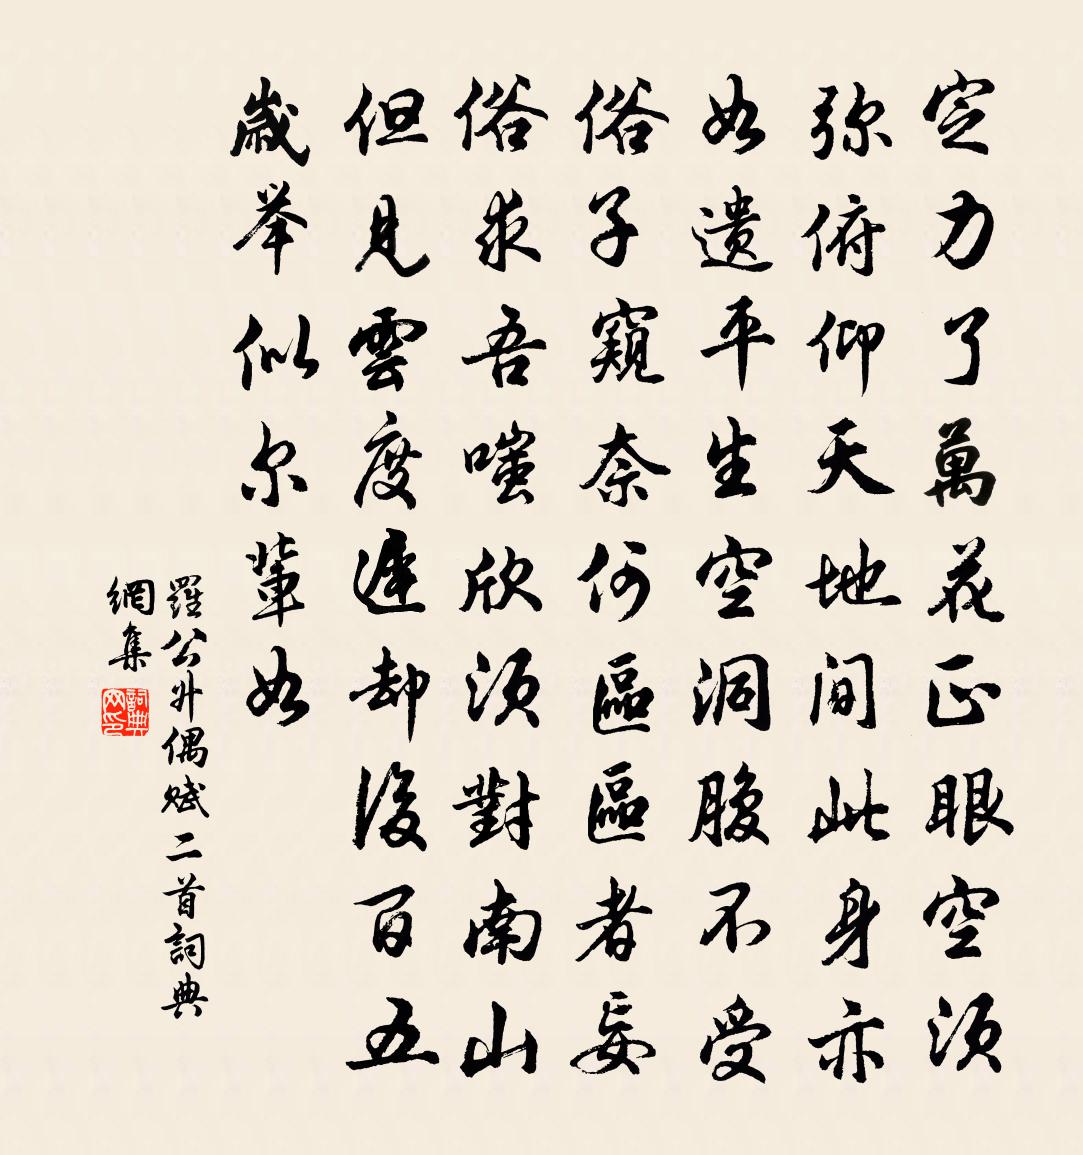 定力了萬花正眼空須
弥俯仰天地間此身亦
如遺平生空洞腹不受
俗子窺奈何區區者妄
俗求吾嗤欣須對南山
但見雲度遲却後百五
歲举似尔輩如
羅公升偶賦二首詞典
網集
詞典網印